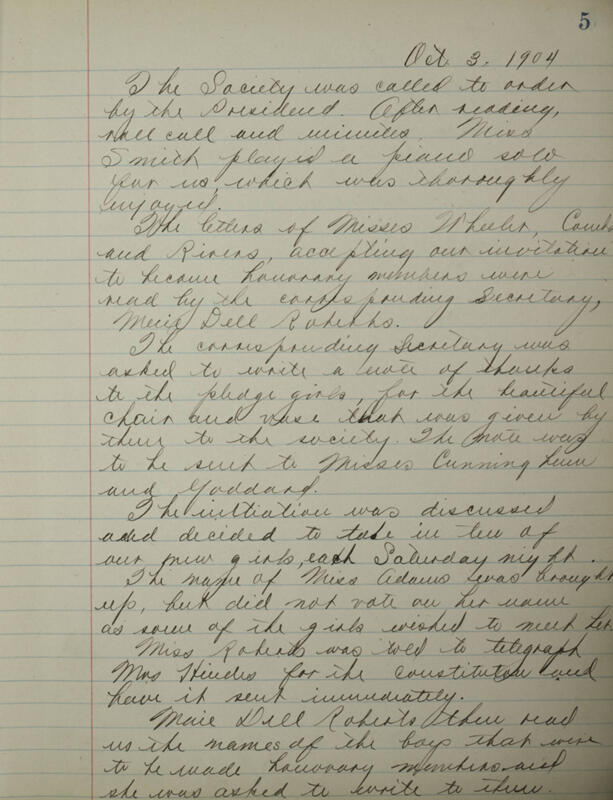 5
Oct. 3. 1904
The Society was called to order
by the President. After reading,
roll call and minutes. Miss
Smith played a piano solo
for us, which was thoroughly
enjoyed.
The letters of Misses Wheeler,
and Rivers, accepting our invitation
to become honorary members were
read by the corresponding Secretary,
Marie Dell Roberts.
The corresponding Secretary was
asked to write a note of thanks
to the pledge girls, for the beautiful
chair and vase that was given by
them to the society. The note was
to be sent to Misses Cunningham
and Goddard.
The initiation was discussed
and decided to take in ten of
our new girls, each Saturday night.
The name of Miss Adams was brought
up, but did not vote on her name
as some of the girls wished to meet her.
Miss Roberts was told to telegraph
Mrs Hindes for the Constitution and
have it sent immediately.
Marie Dell Roberts then read
us the names of the boys that were
to be made honorary members and
she was asked to write to them.